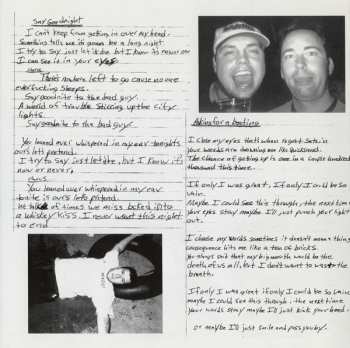 Say Goodnight
I can't keep from getting in over my head.
Something tells me its gonna be a long night
I try to say just let it die but I know its never over
I can see it in your eyes
There's nowhere left to go cause no one
ever fucking sleeps.
Say goodnite to the bad guy.
A world of trouble stirring up the city
lights.
Say goodnite to the bad guy.
You leaned over whispered in my ear tonights
ours lets pretend
I try to say just let it die, but I know its
now or never.
You leaned over whispered in my ear
tonite is ours lets pretend
of times we miss locked into
a whiskey kiss. I never want this night
to end
Asking for a beating
I close my eyes thats when regret sets in
Your words are drowning me like quicksand.
The chance of getting by is one in a couple hundred
thousand this time.
If only I was giant, If only I'd be so
vain.
Maybe I could see this through, the next time
your eyes stay maybe I'll just punch your lights
out.
I choose my words sometimes it doesn't mean a thing
consequence hits me like a ton of bricks
You always said that my big mouth would be the
death of us all, but I don't want to waste the
breath.
If only I was great if only I could be so vain
maybe I could see this through. the next time
your words stay maybe I'll just kick your
or maybe I'll just smile and pass you by.